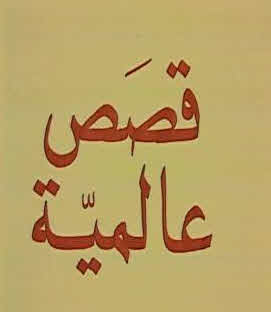 قصَص
عالميّة